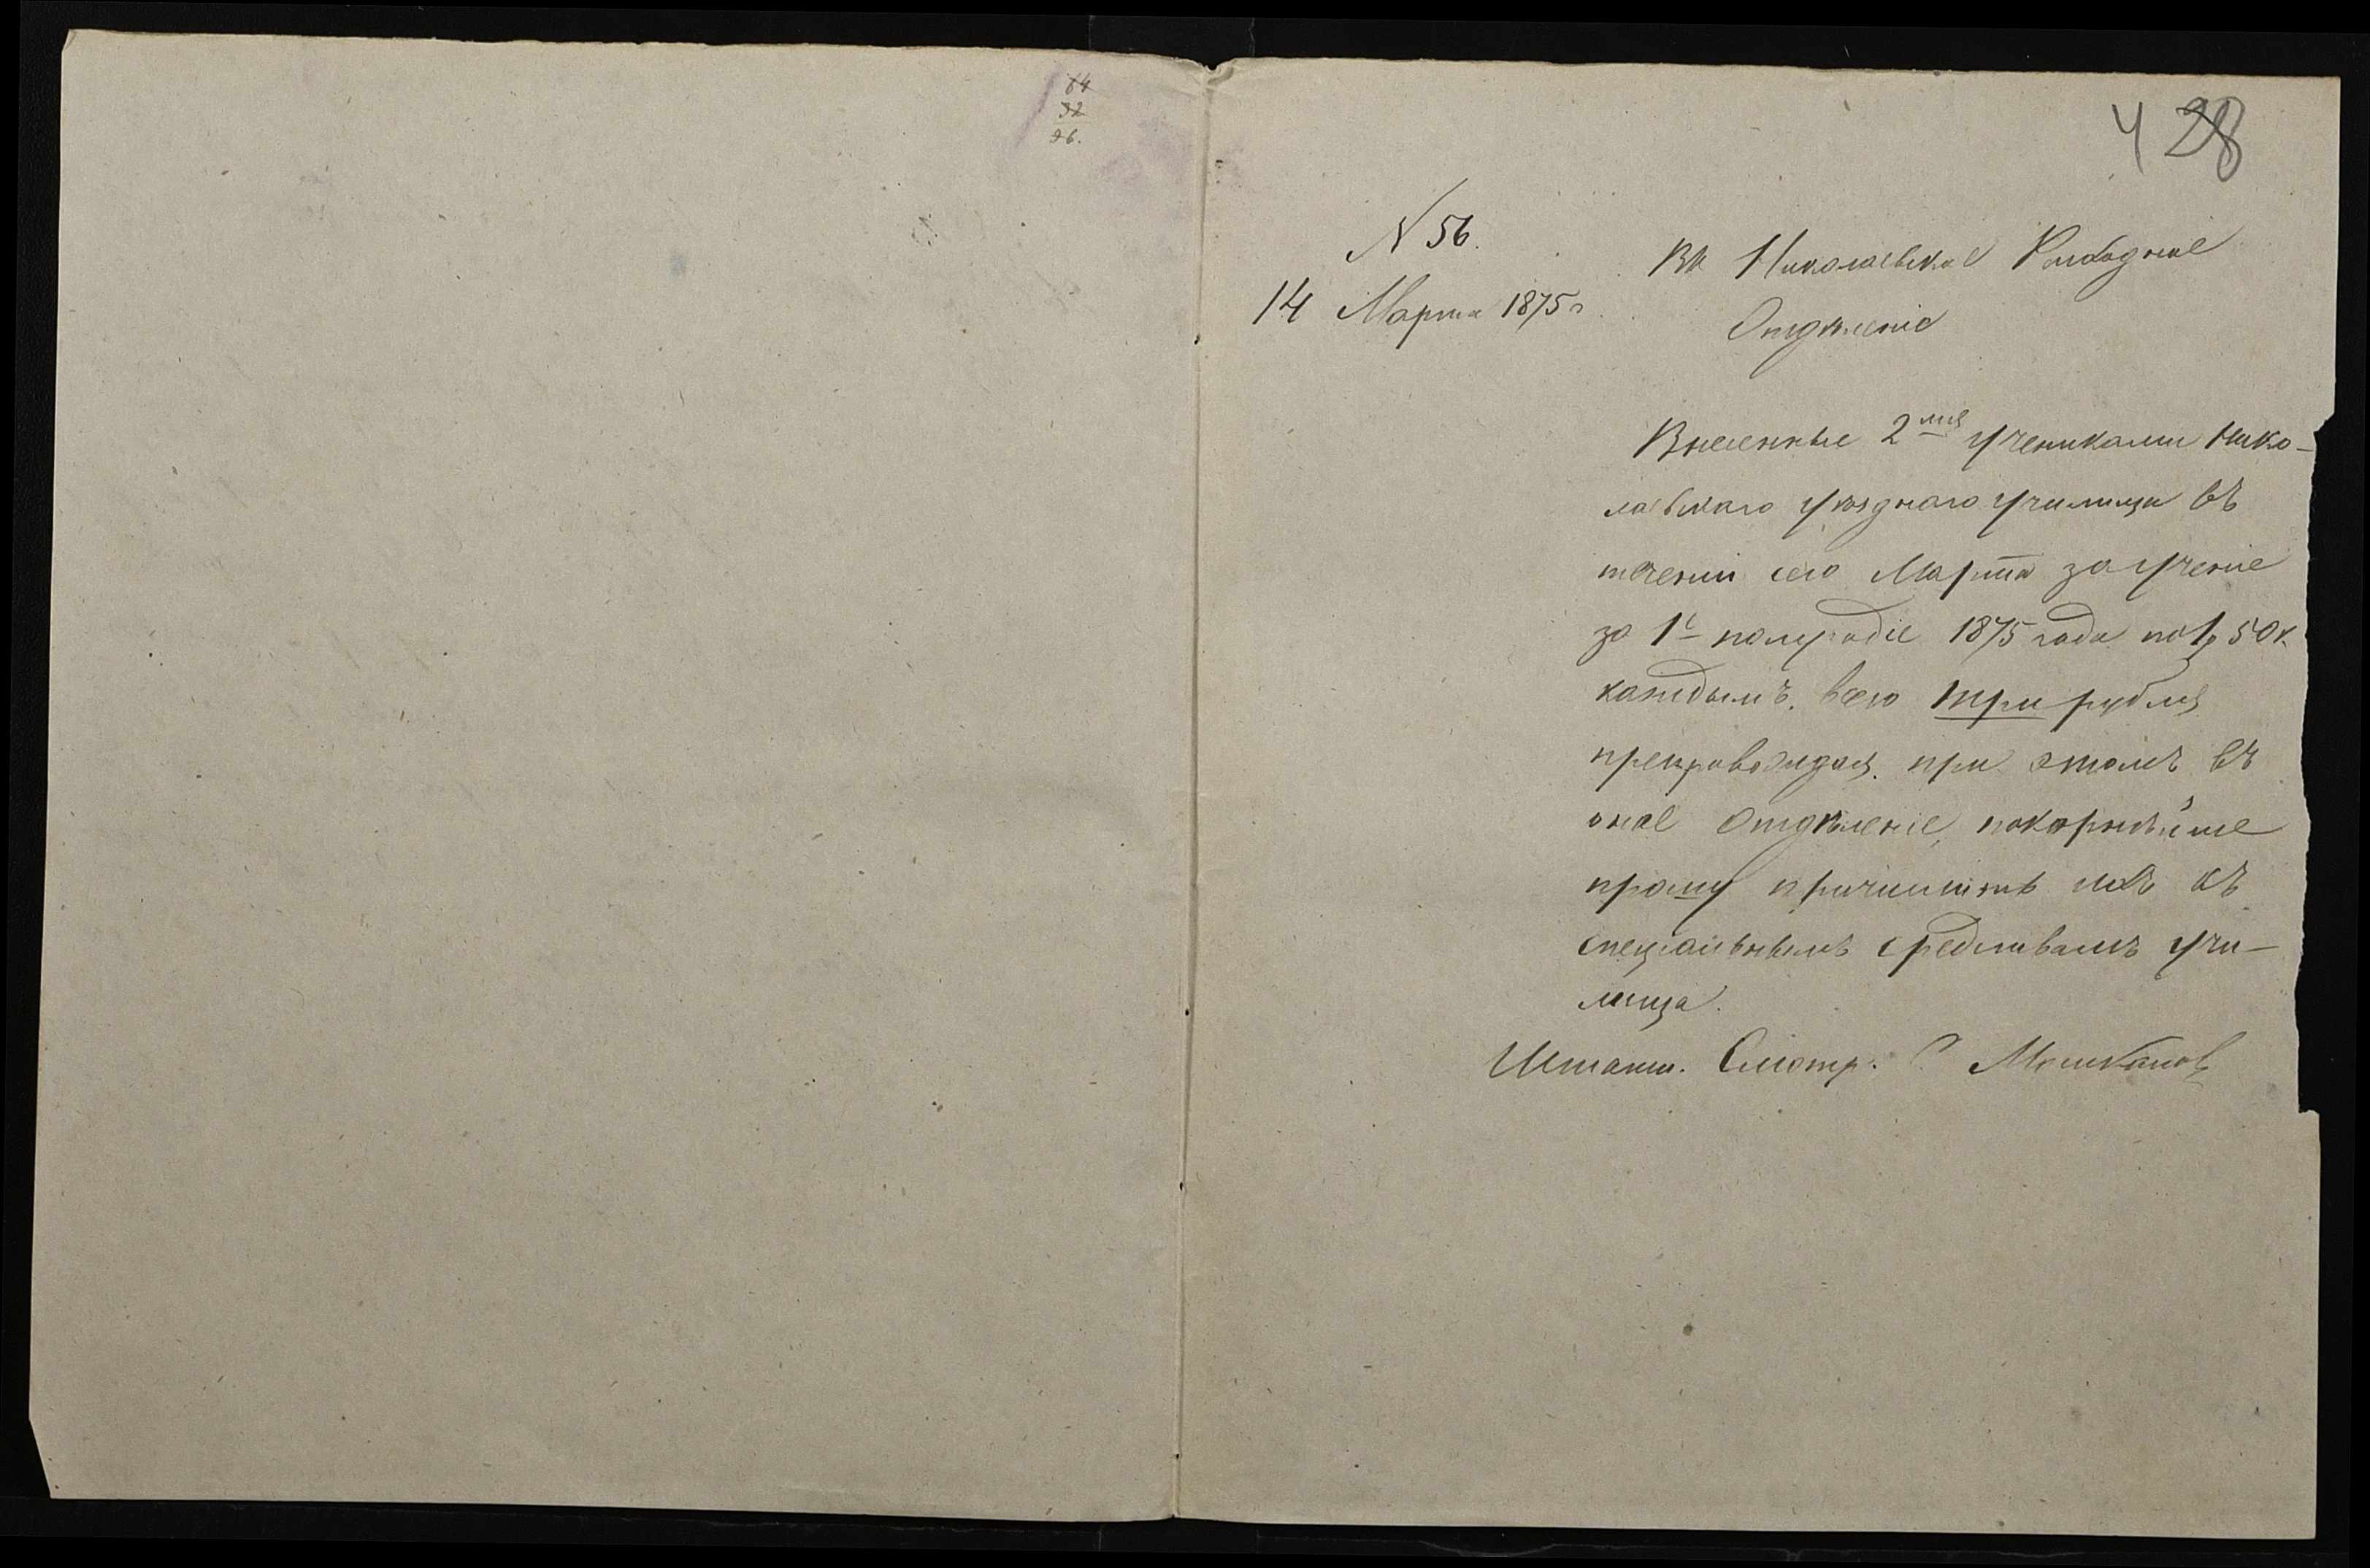 64
32
26.
4 28
N 56.
14 Марта 1875 г.
Въ Николаевское Расходное
Отдѣленіе
Внесенные 2мя учениками Нико-
лаевскаго уѣзднаго училища въ
теченіи сего Марта за ученіе
за 1е полугодіе 1875 года по 1 р 50 к
каждымъ, всего три рубля
препровождая при этомъ въ
оное Отдѣленіе, покорнѣйше
прошу причислить ихъ къ
спеціальнымъ средствамъ учи-
лища.
Штатн. Смотр.